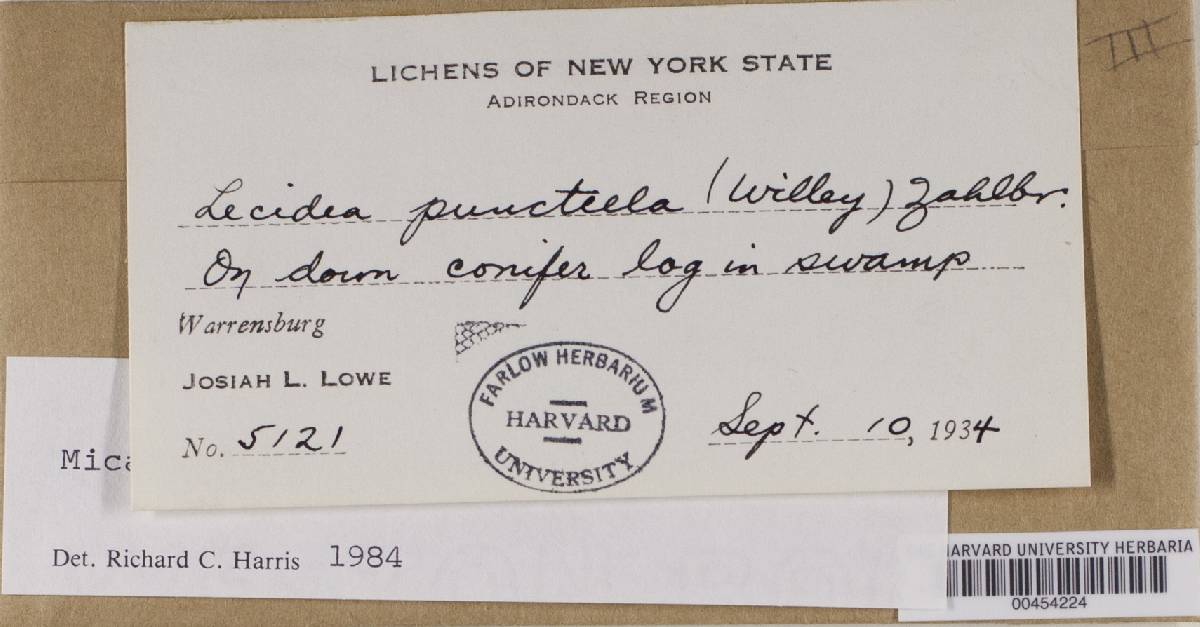 LICHENS OF NEW YORK STATE
ADIRONDACK REGION
III
Lecidea puncteela (Willey) Zahlbr.
On down conifer log in swamp
Warrensburg
JOSIAH L. LOWE
No. 5121
FARLOW HERBARIUM
HARVARD
UNIVERSITY
Sept. 10, 1934
Mica
Det. Richard C. Harris 1984
HARVARD UNIVERSITY HERBARIA
00454224